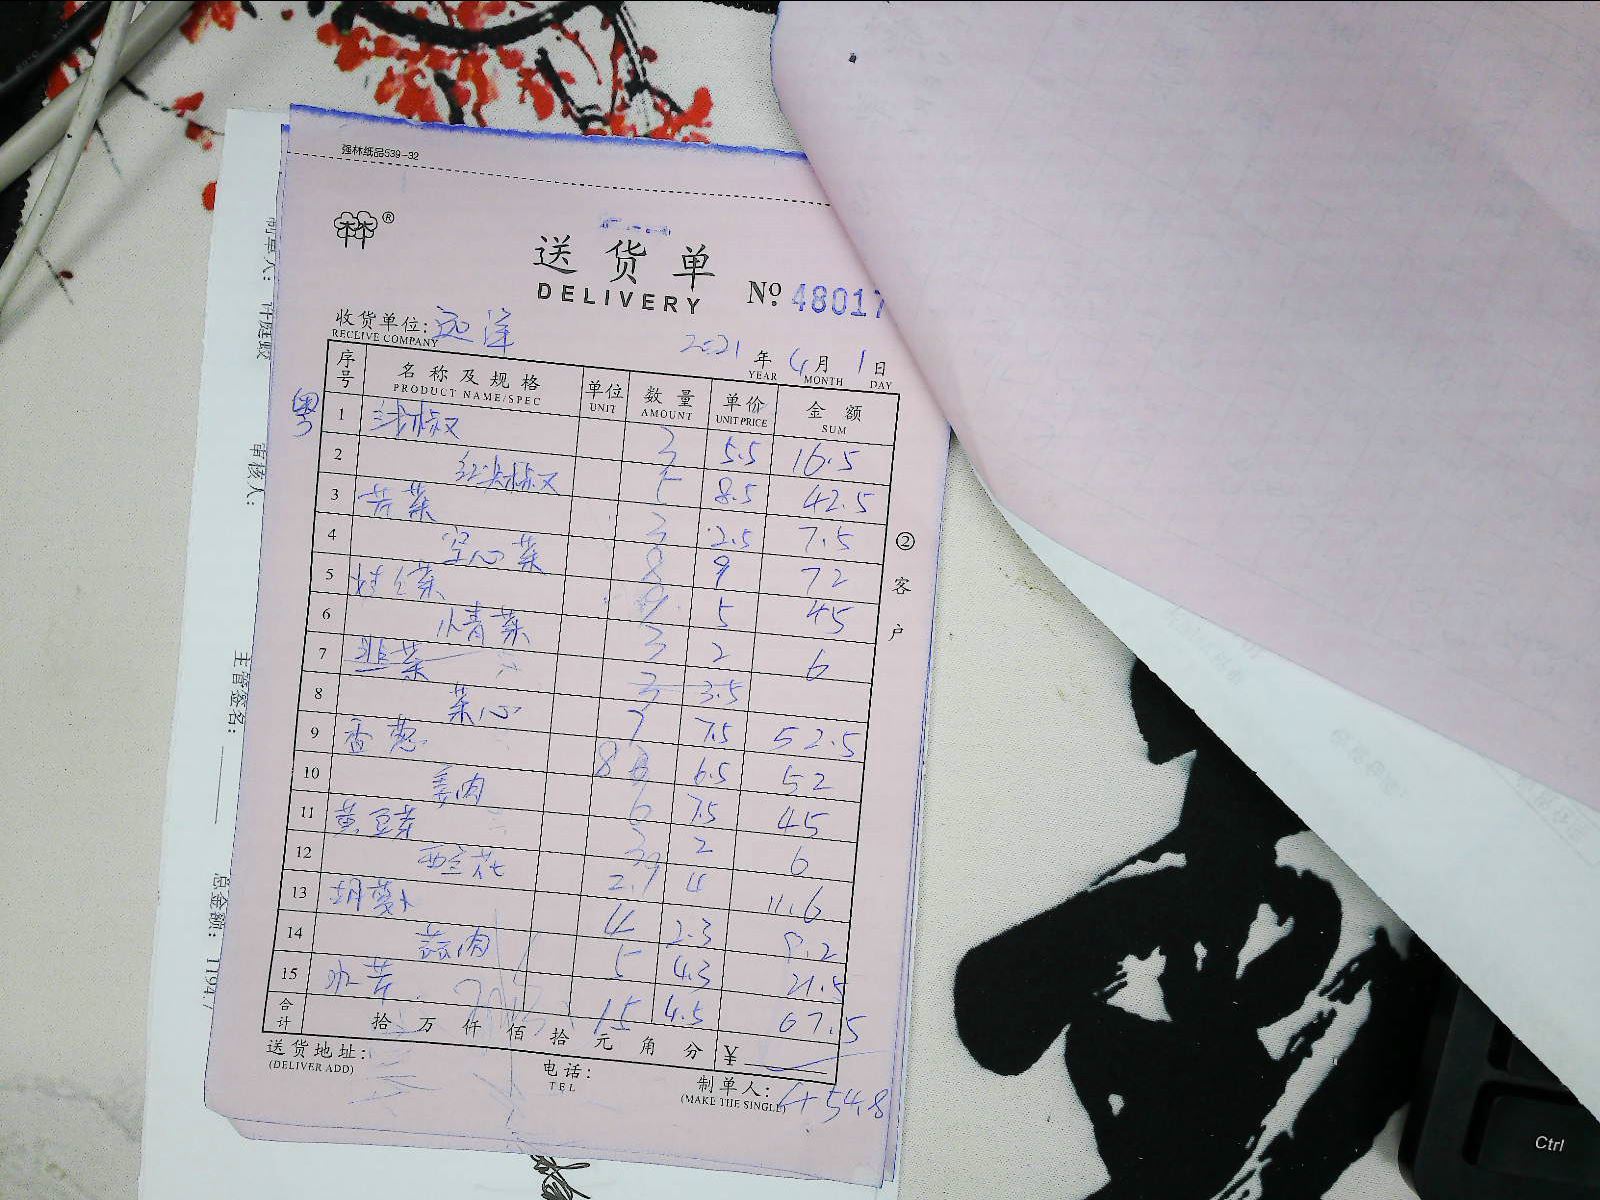 强林纸品539-32
林林®
送货单
DELIVERY
No. 48017
收货单位: 远洋
RECEIVE COMPANY
2021 年 4 月 1 日
YEAR MONTH DAY
序号 名称及规格 单位 数量 单价 金额
PRODUCT NAME/SPEC UNIT AMOUNT UNIT PRICE SUM
1 线椒 3 5.5 16.5
2 红尖椒 5 8.5 42.5
3 芹菜 3 2.5 7.5
4 空心菜 8 9 72
5 9 5 45
6 3 2 6
7 韭菜 3 3.5
8 菜心 7 7.5 52.5
9 香葱 8 6.5 52
10 姜肉 6 7.5 45
11 黄豆芽 3 2 6
12 西兰花 2.9 4 11.6
13 胡萝卜 4 2.3 9.2
14 蒜肉 5 4.3 21.5
15 15 4.5 67.5
合计 拾 万 仟 佰 拾 元 角 分 ¥
送货地址:
(DELIVER ADD)
电话:
TEL
制单人:
(MAKE THE SINGLE)
454.8
② 客户
制单人:
审核人:
主管签名:
总金额: 1194.7
Ctrl